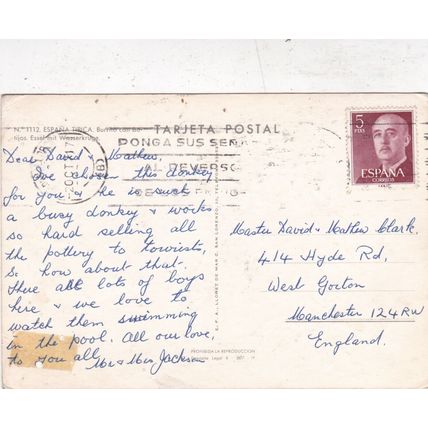 N.º 1112. ESPAÑA TIPICA. Burrito con Bo-
tijos. Esel mit Wasserkrüge.
TARJETA POSTAL
PONGA SUS SEÑAS
AL REVERSO
Dear David & Mathew,
we chosen this donkey
for you & he is such
a busy donkey & works
so hard selling all
the pottery to tourists,
So how about that.
There are lots of boys
here & we love to
watch them swimming
in the pool. All our love,
to you all Mr & Mrs Jackson
5
PTAS
ESPAÑA
CORREOS
Master David & Mathew Clark.
414 Hyde Rd,
West Gorton
Manchester 124RW
England.
PROHIBIDA LA REPRODUCCION